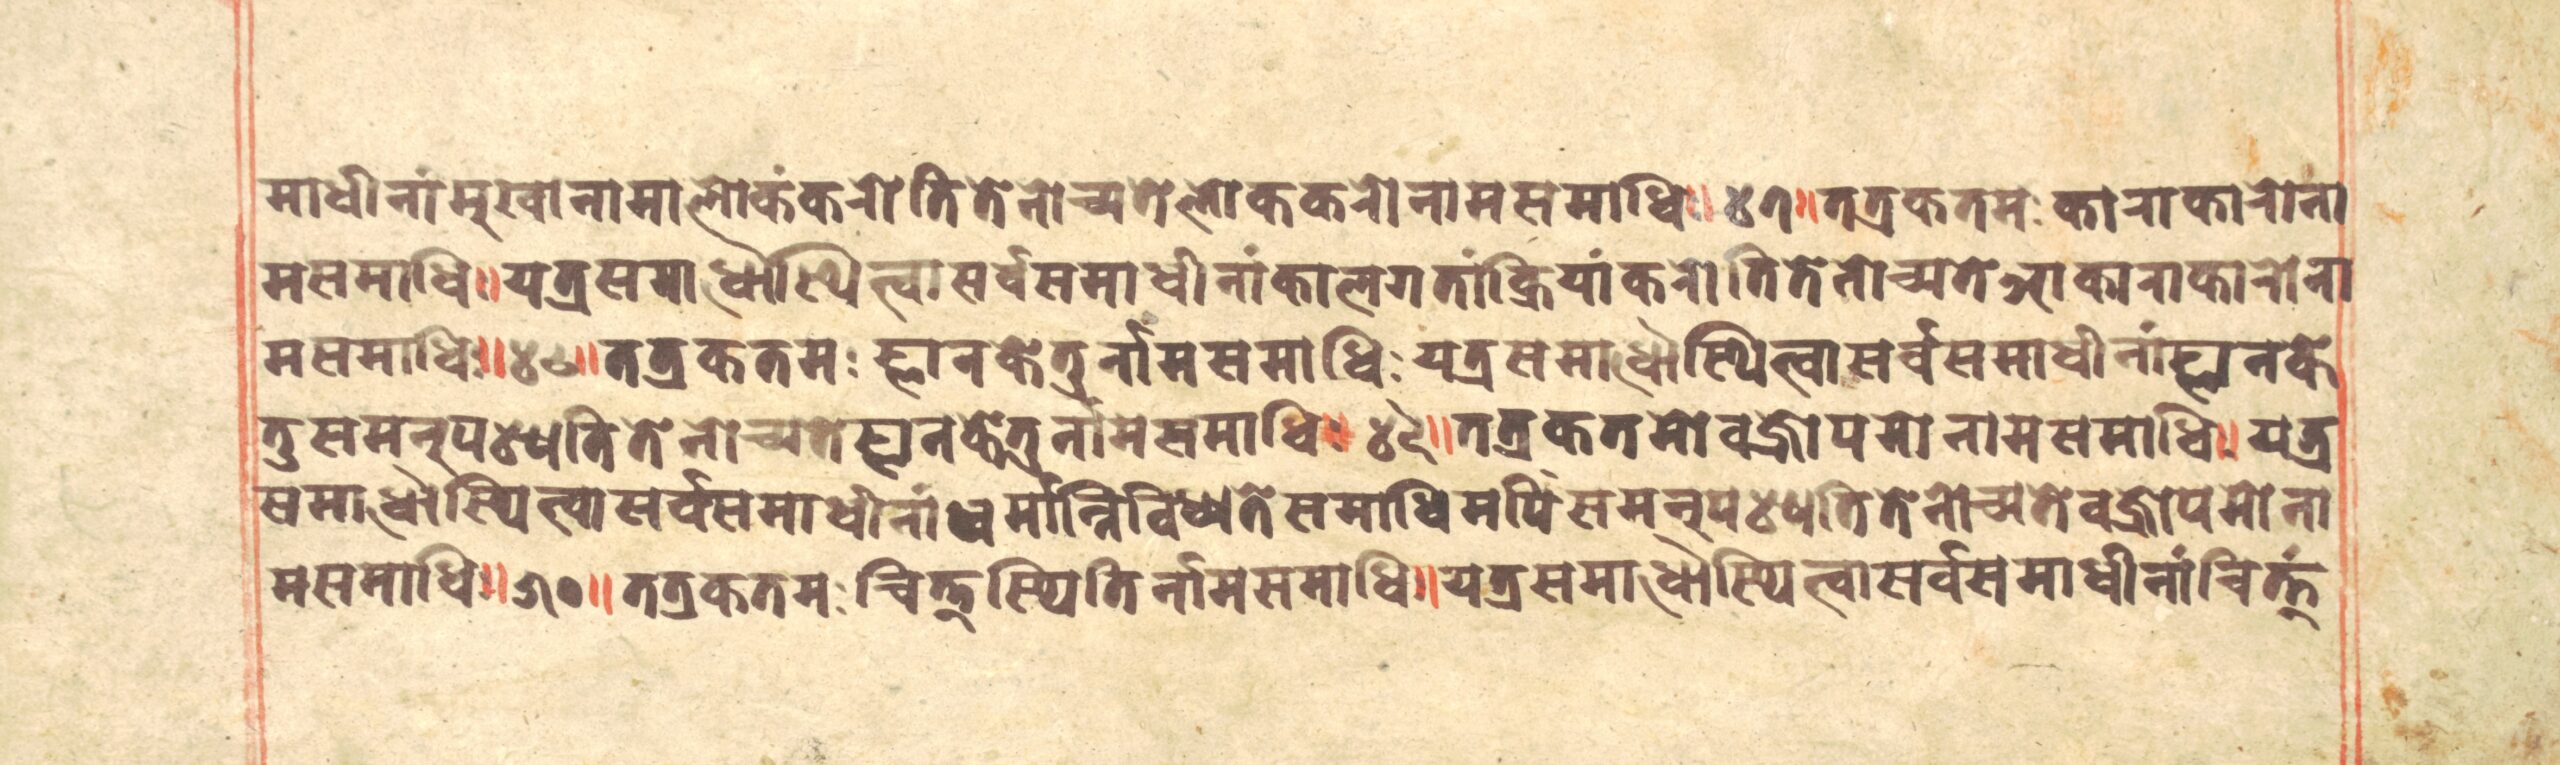 माधीनांमुखानामालोकंकरोतितेनोच्यतेलोककरोनामसमाधिः॥४७॥तत्रकतमःकाराकारोना
मसमाधिः॥यत्रसमाधौस्थित्वासर्वसमाधीनांकालगतांक्रियांकरोतितेनोच्यतेआकाराकारोना
मसमाधिः॥४८॥तत्रकतमःस्थानकेतुर्नामसमाधिःयत्रसमाधौस्थित्वासर्वसमाधीनांस्थानके
तुसमनुपश्यतितेनोच्यतेस्थानकेतुर्नामसमाधिः॥४९॥तत्रकतमोवज्रोपमोनामसमाधिः॥यत्र
समाधौस्थित्वासर्वसमाधीनांधर्मान्निविध्यतेसमाधिमपिसमनुपश्यतितेनोच्यतेवज्रोपमोना
मसमाधिः॥५०॥तत्रकतमःचित्तस्थितिर्नामसमाधिः॥यत्रसमाधौस्थित्वासर्वसमाधीनांचित्तं